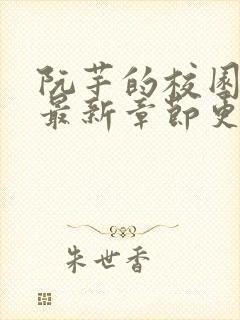 阮芋的校园
最新章节更
朱世香